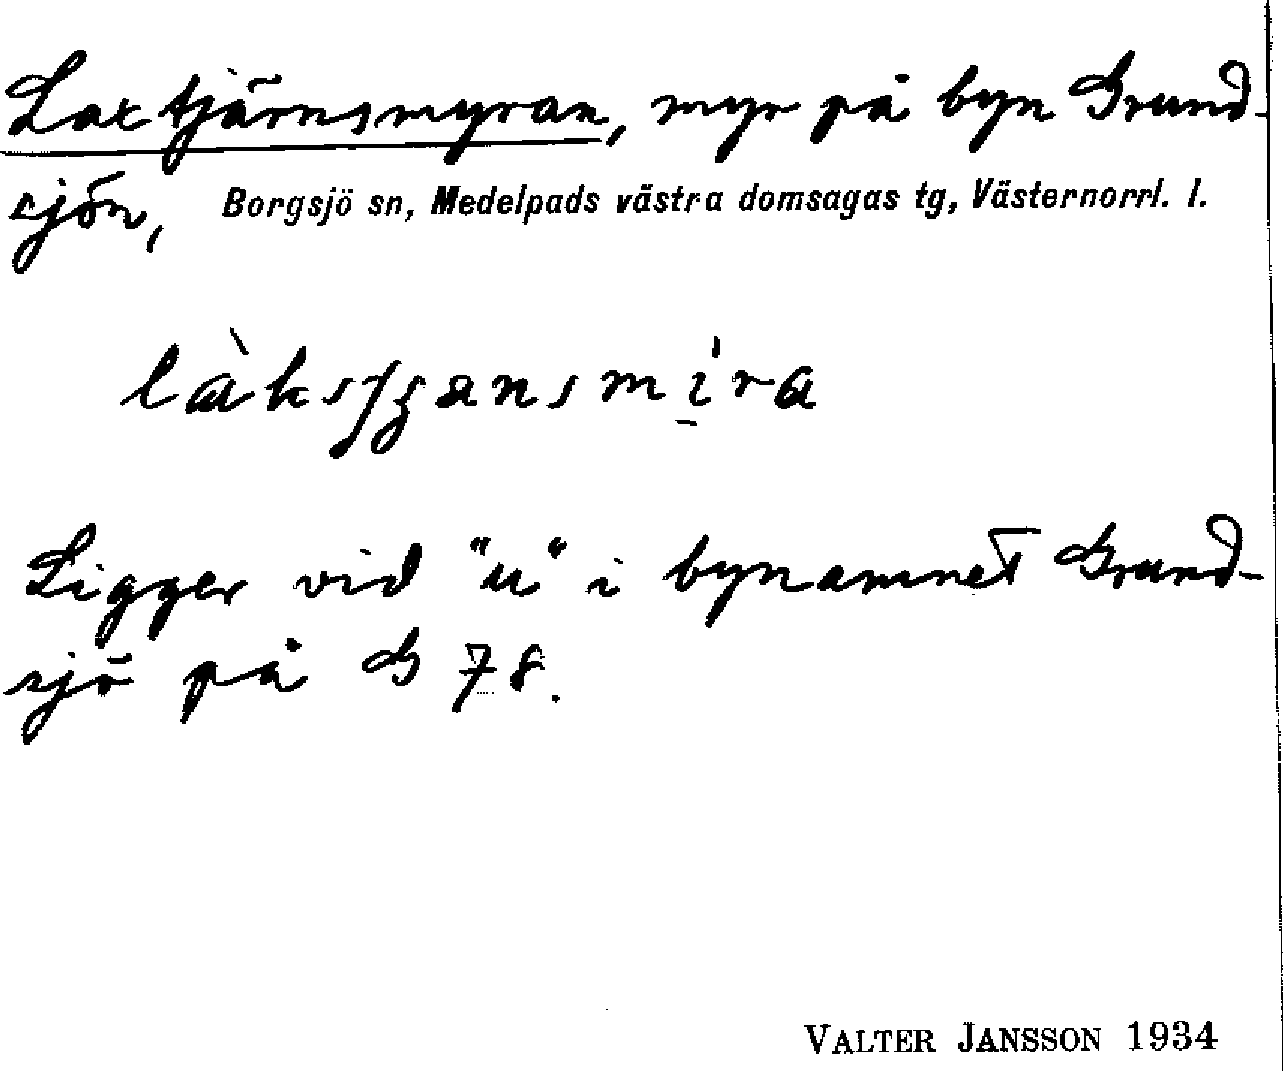 Laxtjärnsmyran, myr på byn Grund-
sjön, Borgsjö sn, Medelpads västra domsagas tg, Västernorrl. l.
Ligger vid "u" i bynamnet Grund-
sjö på G 78.
VALTER JANSSON 1934